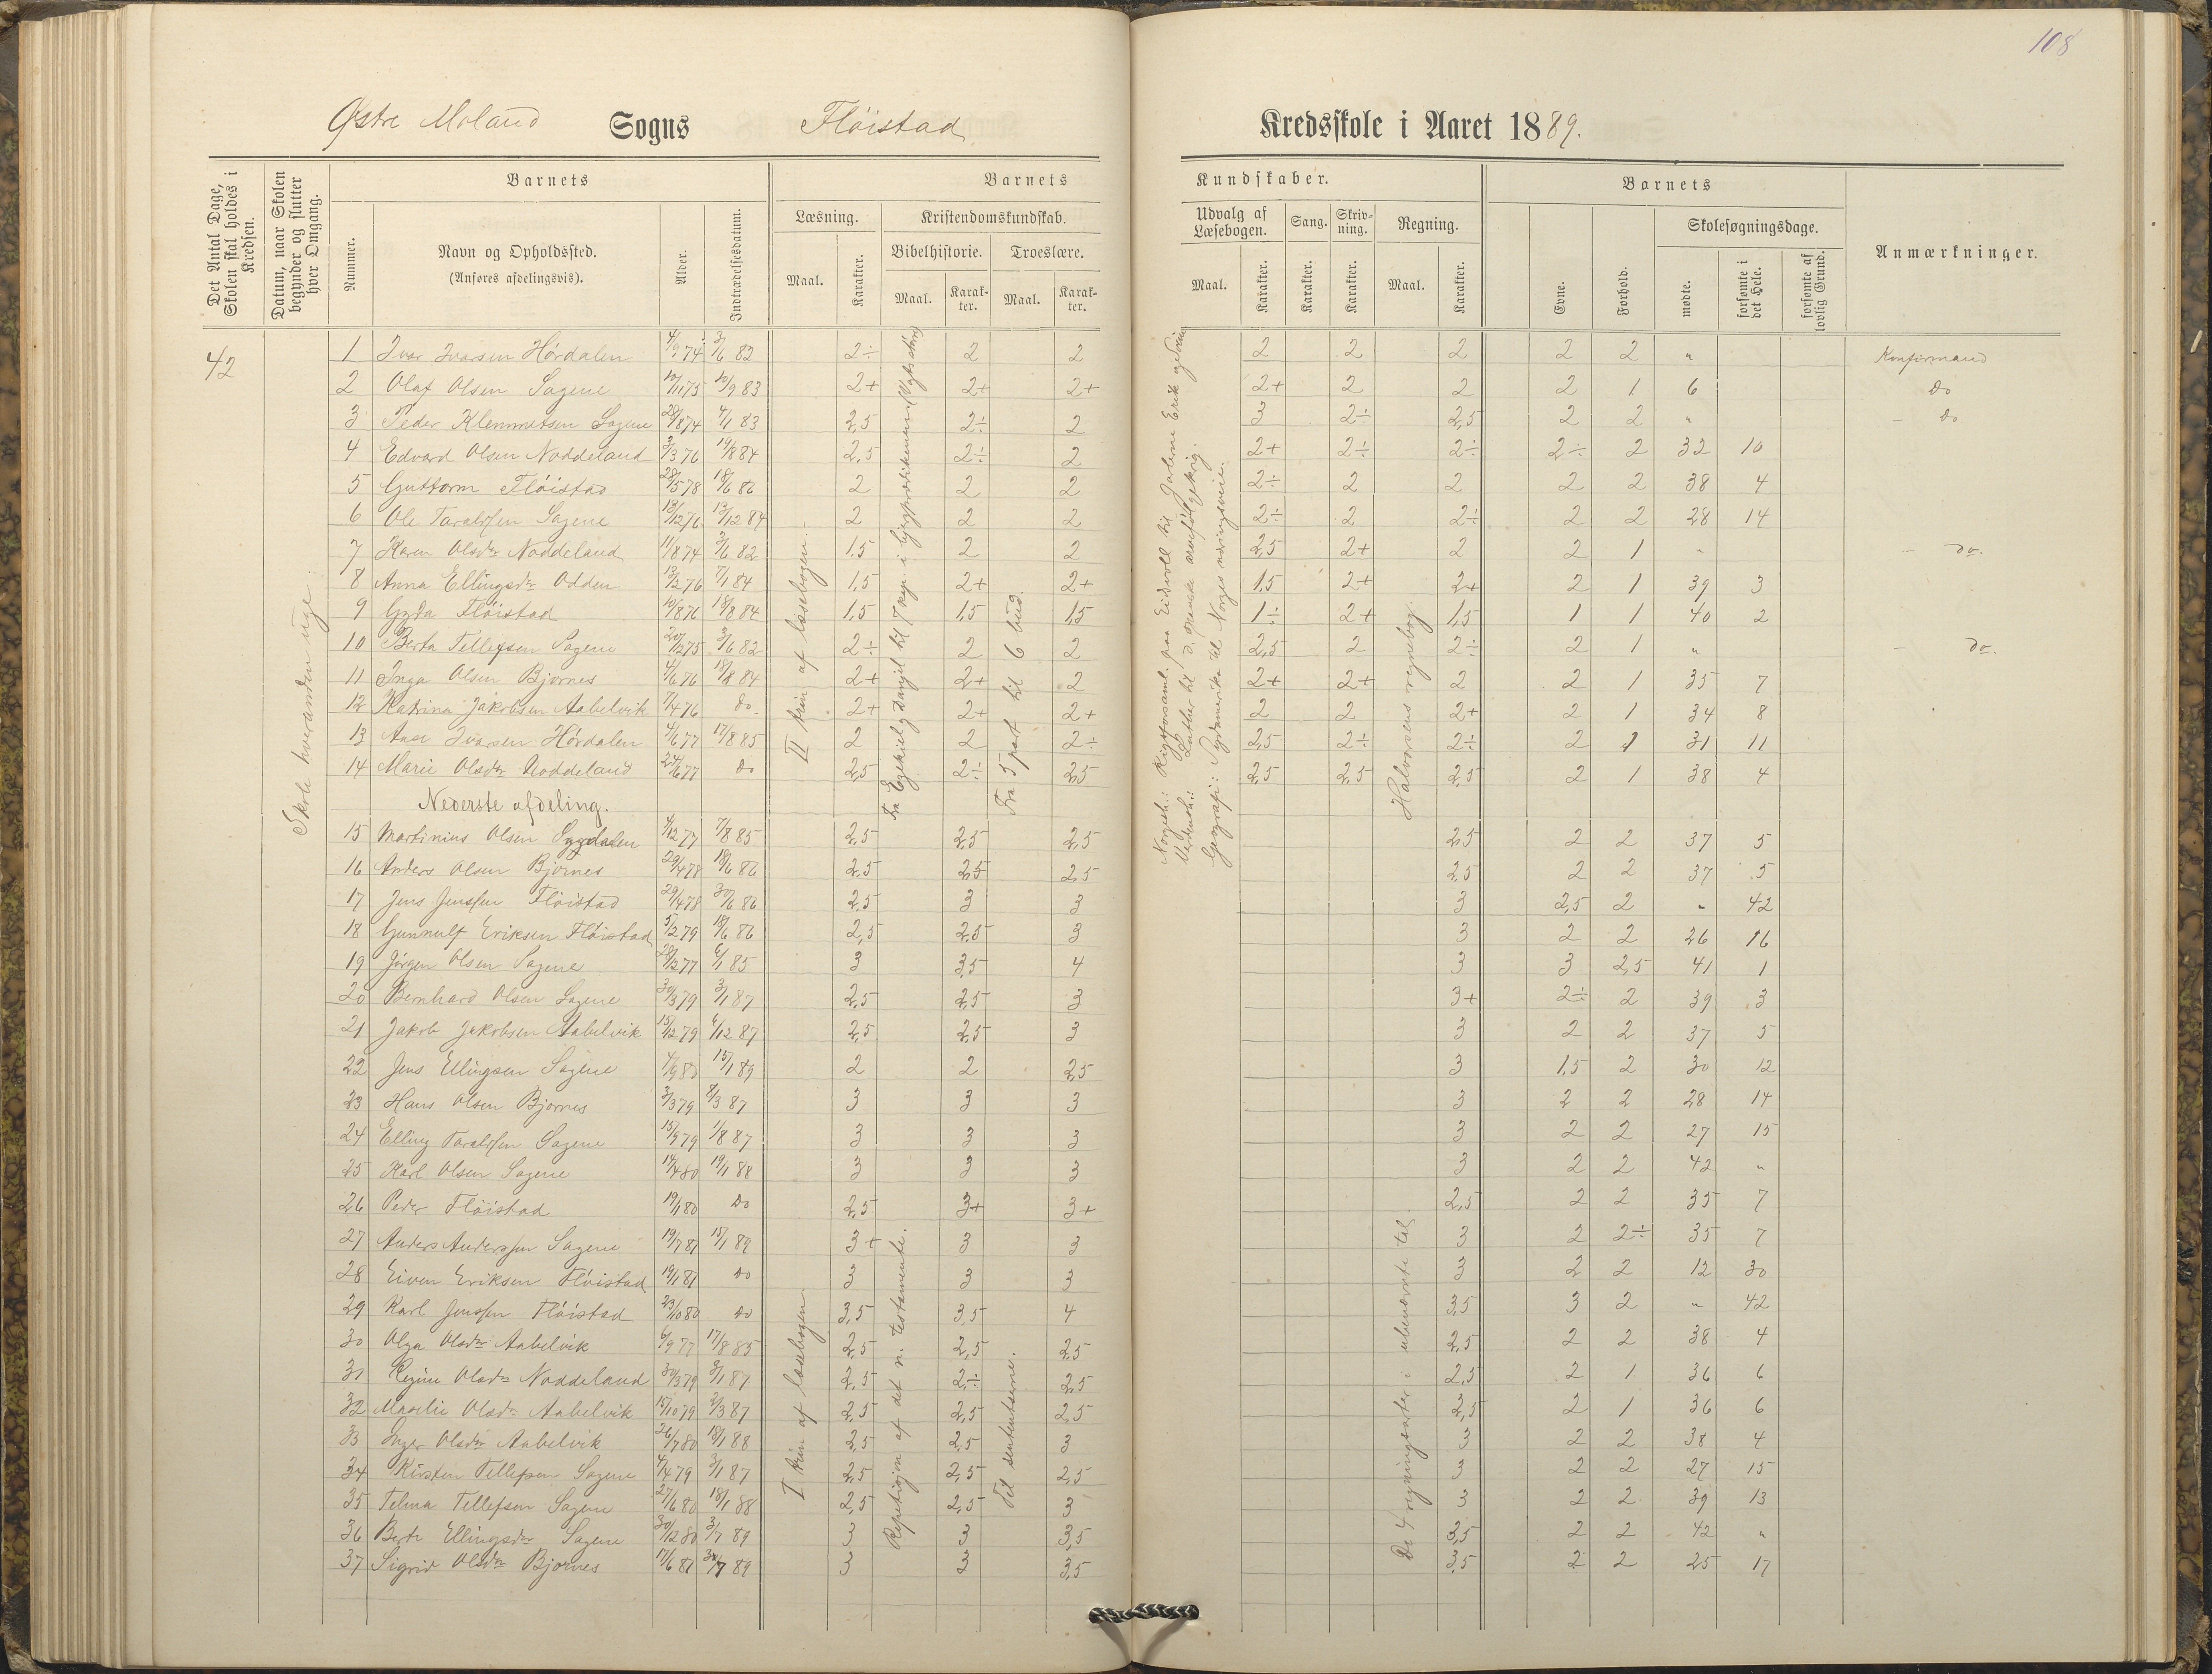 108
Østre Moland Sogns Flöistad Kredsskole i Aaret 1889.
Det Antal Dage, Skolen skal holdes i Kredsen.
Datum, naar Skolen begynder og slutter hver Omgang.
Barnets
Nummer.
Navn og Opholdssted.
(Anføres afdelingsvis).
Alder.
Indtrædelsesdatum.
Barnets Kundskaber.
Læsning.
Maal. Karakter.
Kristendomskundskab.
Bibelhistorie. Troeslære.
Maal. Karakter. Maal. Karakter.
Udvalg af Læsebogen.
Maal. Karakter.
Sang. Karakter.
Skrivning. Karakter.
Regning.
Maal. Karakter.
Barnets
Evne. Forhold.
Skolesøgningsdage.
mødte. forsømte i det Hele. forsømte af lovlig Grund.
Anmærkninger.
42
Skole hveranden uge.
II trin af læsebogen.
Fra 5 part til 6 bud.
Halvorsens regnebog.
1 Ivar Ivarsen Hördalen 4/9 74 3/6 82 2÷ 2 2 2 2 2 2 2 " Konfirmand
2 Olaf Olsen Sagene 10/11 75 10/9 83 2+ 2+ 2+ 2+ 2 2 2 1 6 Do
3 Peder Klemmetsen Sagene 28/8 74 4/1 83 2,5 2÷ 2 3 2÷ 2,5 2 2 " - Do
4 Edvard Olsen Noddeland 3/3 76 19/8 84 2,5 2÷ 2 2+ 2÷ 2÷ 2÷ 2 32 10
5 Guttorm Flöistad 28/5 78 18/6 86 2 2 2 2÷ 2 2 2 2 38 4
6 Ole Taraldsen Sagene 13/12 76 13/12 84 2 2 2 2÷ 2 2÷ 2 2 28 14
7 Karen Olsdtr Noddeland 11/8 74 3/6 82 1,5 2 2 2,5 2+ 2 2 1 " - do.
8 Anna Ellingsdtr Odden 13/2 76 7/1 84 1,5 2+ 2+ 1,5 2+ 2+ 2 1 39 3
9 Gyda Flöistad 10/8 76 18/8 84 1,5 1,5 1,5 1÷ 2+ 1,5 1 1 40 2
10 Berta Tellefsen Sagene 20/12 75 3/6 82 2÷ 2 2 2,5 2 2÷ 2 1 " - do.
11 Inga Olsen Bjornes 4/6 76 18/8 84 2+ 2+ 2 2+ 2+ 2 2 1 35 7
12 Katrina Jakobsen Aabelvik 7/4 76 do. 2+ 2+ 2+ 2 2 2+ 2 1 34 8
13 Aase Ivarsen Hördalen 4/6 77 17/8 85 2 2 2÷ 2,5 2÷ 2÷ 2 1 31 11
14 Marie Olsdtr Noddeland 24/6 77 do 2,5 2÷ 2,5 2,5 2,5 2,5 2 1 38 4
Nederste afdeling.
15 Martinius Olsen 4/12 77 7/8 85 2,5 2,5 2,5 2,5 2 2 37 5
16 Anders Olsen Bjornes 29/4 78 18/6 86 2,5 2,5 2,5 2,5 2 2 37 5
17 Jens Jenssen Flöistad 29/4 78 30/6 86 2,5 3 3 3 2,5 2 " 42
18 Gunnulf Eriksen Flöistad 5/2 79 18/6 86 2,5 2,5 3 3 2 2 26 16
19 Jörgen Olsen Sagene 28/12 77 6/1 85 3 3,5 4 3 3 2,5 41 1
20 Bernhard Olsen Sagene 30/3 79 3/1 87 2,5 2,5 3 3+ 2÷ 2 39 3
21 Jakob Jakobsen Aabelvik 15/12 79 6/12 87 2,5 2,5 3 3 2 2 37 5
22 Jens Ellingsen Sagene 4/9 80 15/1 89 2 2 2,5 3 1,5 2 30 12
23 Hans Olsen Bjornes 3/3 79 8/3 87 3 3 3 3 2 2 28 14
24 Elling Taraldsen Sagene 15/9 79 1/8 87 3 3 3 3 2 2 27 15
25 Karl Olsen Sagene 14/4 80 19/1 88 3 3 3 3 2 2 42 "
26 Peder Flöistad 19/1 80 Do 2,5 3+ 3+ 2,5 2 2 35 7
27 Anders Anderssen Sagene 19/7 81 15/1 89 3+ 3 3 3 2 2÷ 35 7
28 Eiven Eriksen Flöistad 19/1 81 do 3 3 3 3 2 2 12 30
29 Karl Jenssen Flöistad 23/10 80 do 3,5 3,5 4 3,5 3 2 " 42
30 Olga Olsdtr Aabelvik 6/9 77 17/8 85 2,5 2,5 2,5 2,5 2 2 38 4
31 Regine Olsdtr Noddeland 30/3 79 3/1 87 2,5 2÷ 2,5 2,5 2 1 36 6
32 Olsdtr Aabelvik 15/10 79 2/3 87 2,5 2,5 2,5 2,5 2 1 36 6
33 Inger Olsdtr Aabelvik 26/7 80 18/1 88 2,5 2,5 3 3 2 2 38 4
34 Kirsten Tellefsen Sagene 4/4 79 3/1 87 2,5 2,5 2,5 3 2 2 27 15
35 Telma Tellefsen Sagene 27/6 80 18/1 88 2,5 2,5 3 3 2 2 39 13
36 Berte Ellingsdtr Sagene 30/12 80 3/7 89 3 3 3,5 3,5 2 2 42 "
37 Sigrid Olsdtr Bjornes 17/6 81 30/7 89 3 3 3,5 3,5 2 2 25 17
I trin af læsebogen.
Repetisjon af det n. testamente.
Til sentenserne.
De 4 regningsarter i ubenævnte tal.